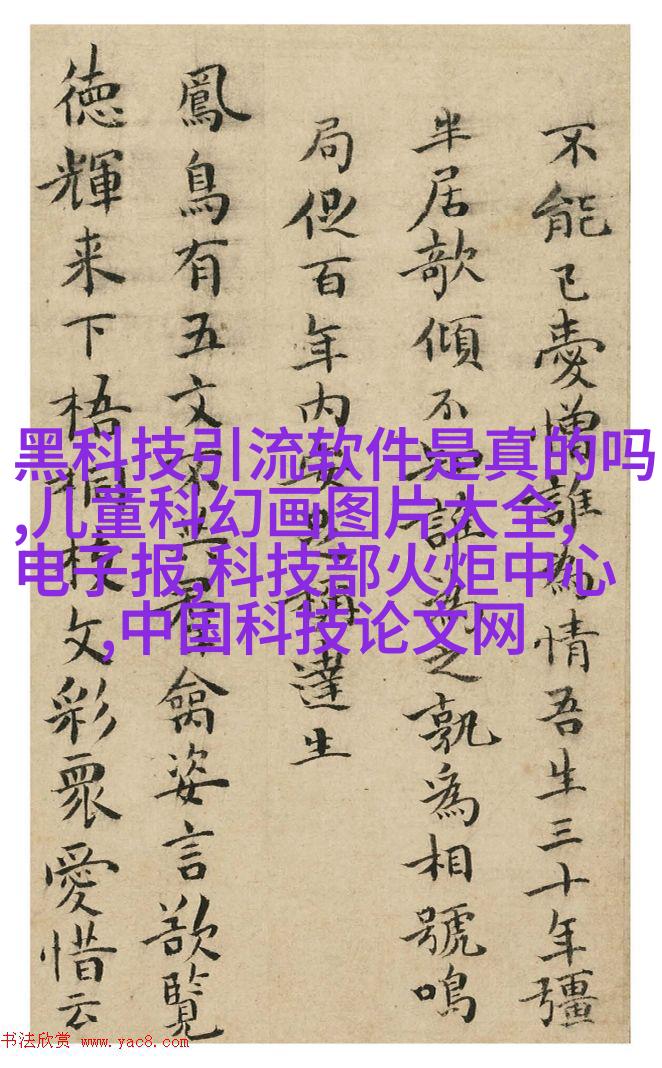 不能已憂憎誰為情吾生三十年彊
半居欹傾不
之孰爲相號鳴
局促百年内
達生
鳳鳥有五文
禽姿言欲覽
德輝来下梧桐枝文彩衆愛惜云
黑科技引流软件是真的吗
,儿童科幻画图片大全,
电子报,科技部火炬中心
,中国科技论文网
书法欣赏 www.yac8.com